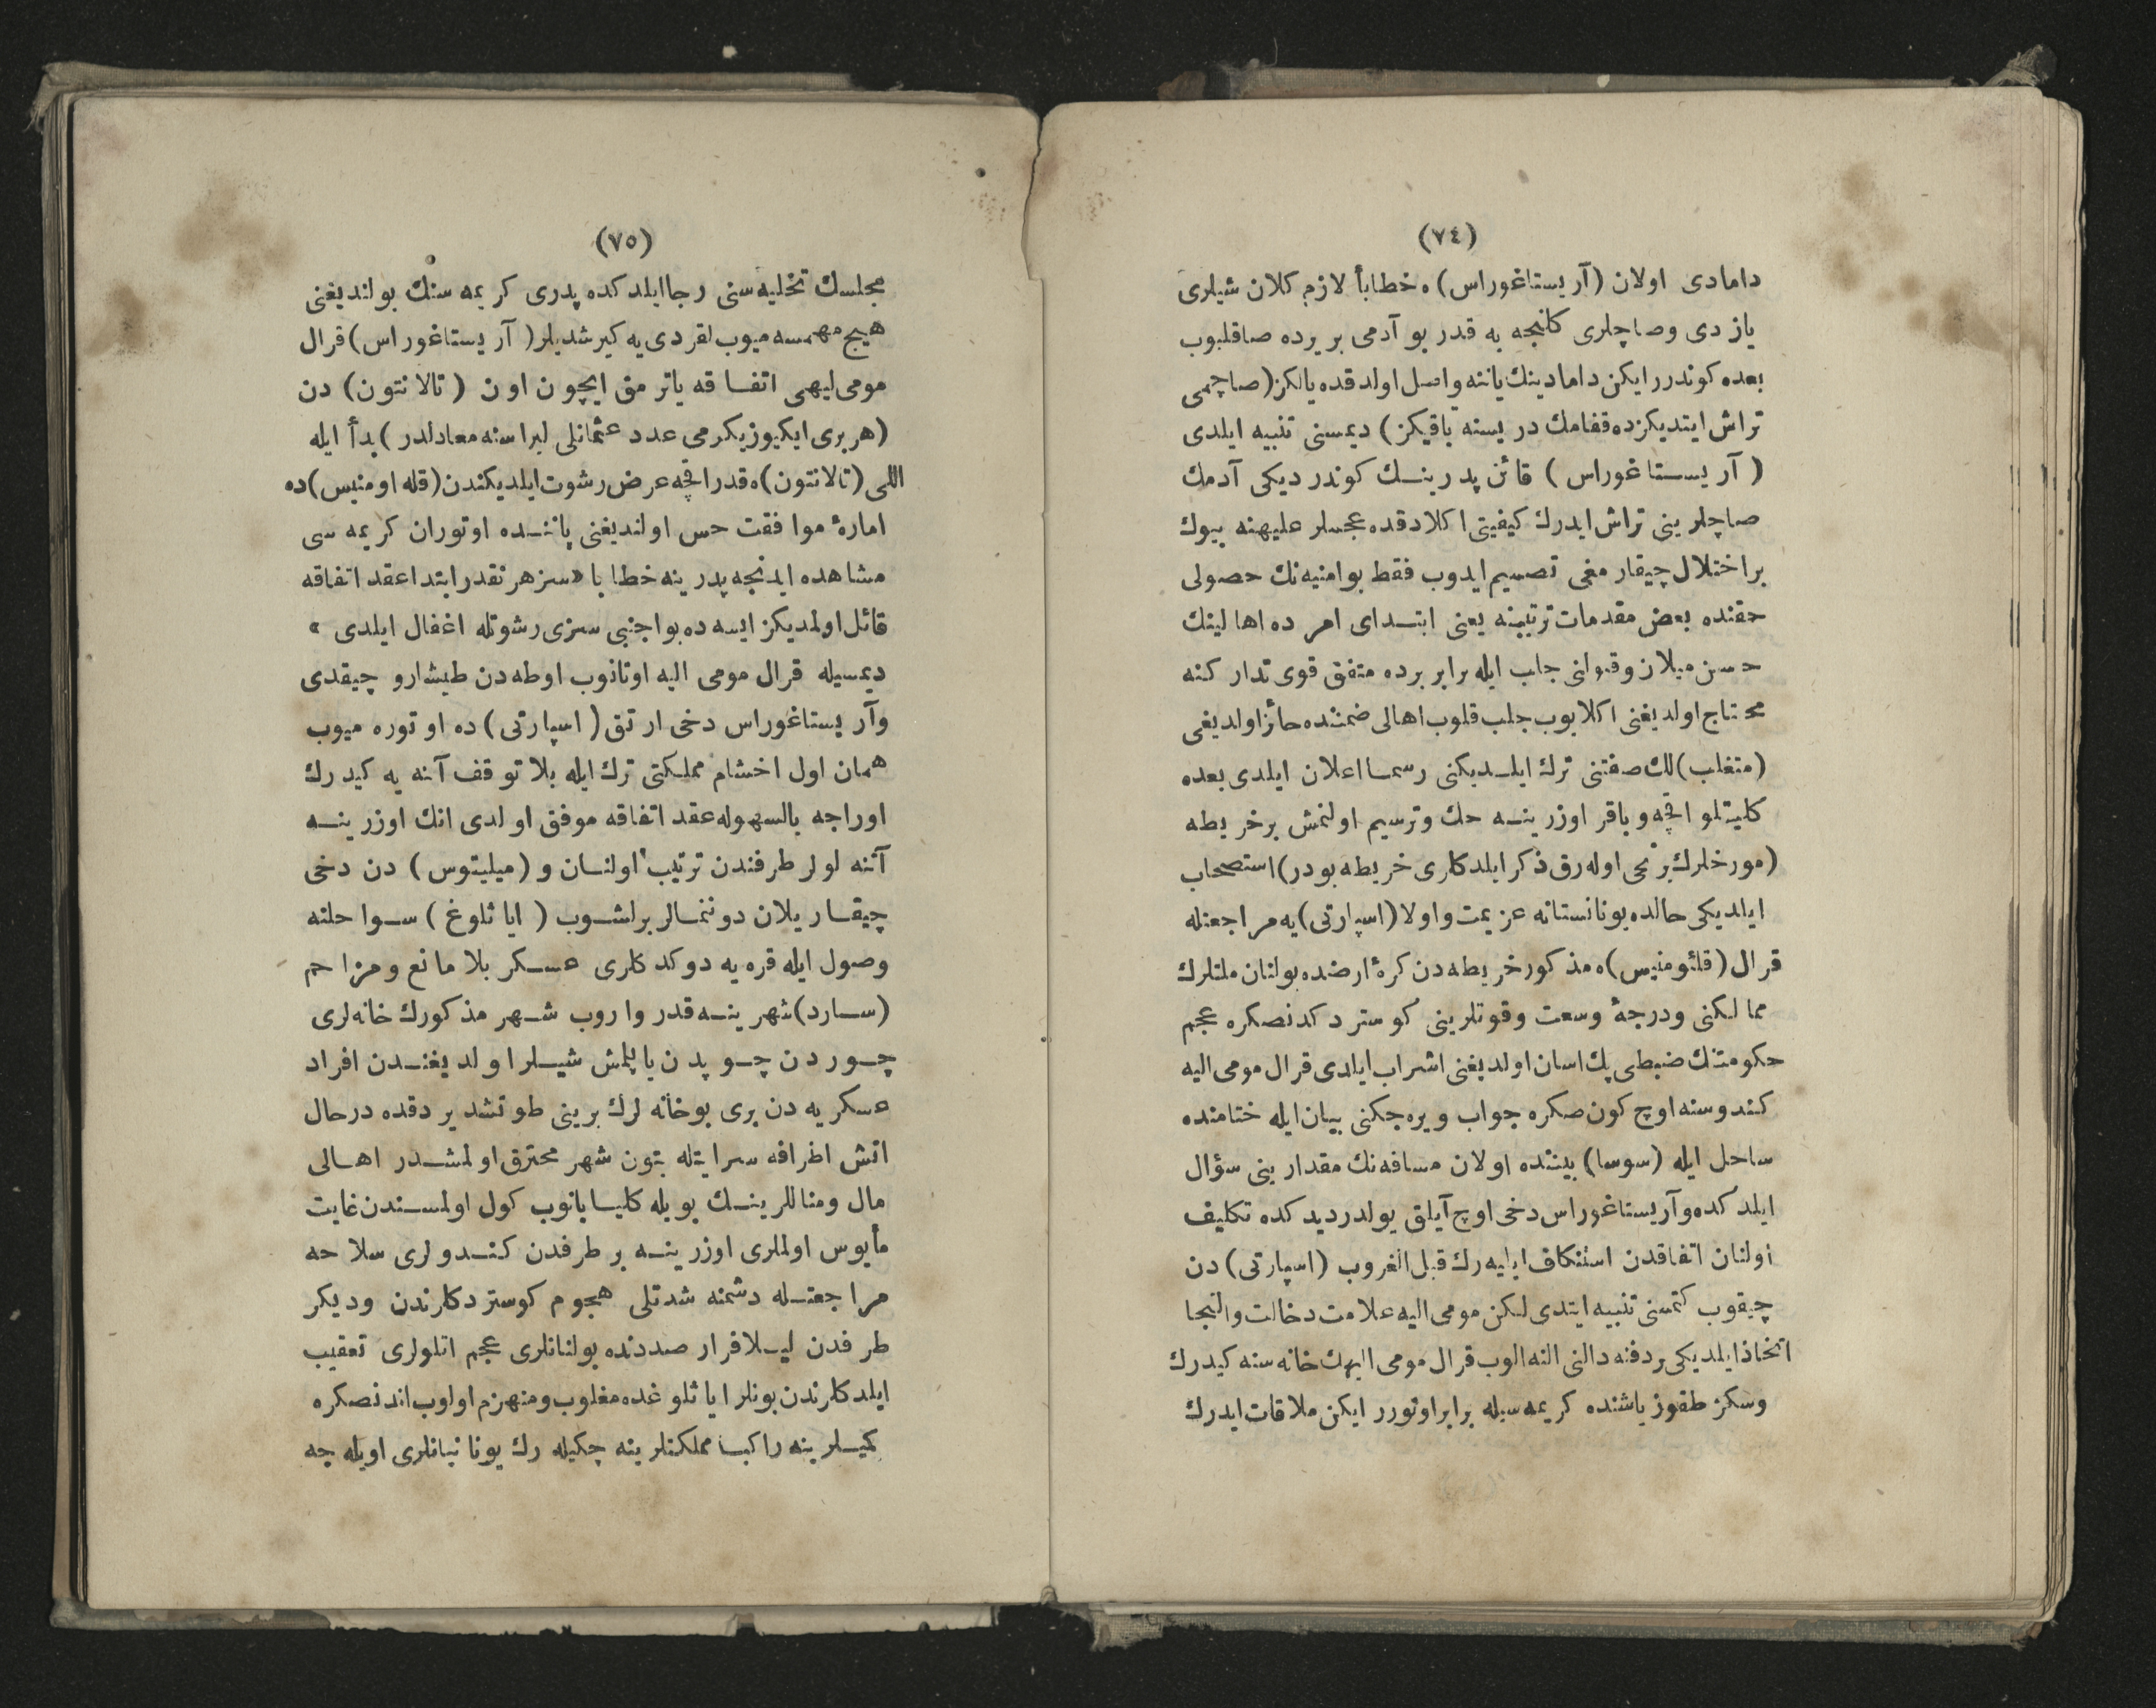 (٧٤)
دامادی اولان (آریستاغوراس)ه خطاباً لازم کلان شیلری
یازدی وصاچلری کلنجه یه قدر بو آدمی بریرده صاقلیوب
بعده کوندررایکن دامادینك یاننه واصل اولدقده یالکز (صاچمی
تراش ایتدیکزده قفامك دریسنه باقیکز) دیمسنی تنبیه ایلدی
(آریستاغوراس) قائن پدرینك کوندردیکی آدمك
صاچلرینی تراش ایدرك کیفیتی اکلادقده عجملر علیهنه بیوك
براختلال چیقارمغی تصمیم ایدوب فقط بوامنیه نك حصولی
حقنده بعض مقدمات ترتیبنه یعنی ابتدای امرده اهالینك
حسن میلان وقبولنی جلب ایله برابر برده متفق قوی تدارکنه
محتاج اولدیغنی اکلایوب جلب قلوب اهالی ضمننده حائز اولدیغی
(متغلب)لك صفتنی ترك ایلدیکنی رسما اعلان ایلدی بعده
کلیتلو اقچه وباقر اوزرینه حك وترسیم اولنمش برخریطه
(مورخلرك برنجی اوله رق ذکرایلدکلری خریطه بودر) استصحاب
ایلدیکی حالده یونانستانه عزیمت واولا (اسپارتی)یه مراجعتله
قرال (قلئومنیس)ه مذکور خریطه دن کرۀ ارضده بولنان ملتلرك
ممالکنی ودرجۀ وسعت وقوتلرینی کوستردکدنصکره عجم
حکومتنك ضبطی پك اسان اولدیغنی اشراب ایلدی قرال مومی الیه
کندوسنه اوچ کون صکره جواب ویره جکنی بیان ایله ختامنده
ساحل ایله (سوسا) بیننده اولان مسافه نك مقدارینی سؤال
ایلدکده وآریستاغوراس دخی اوچ آیلق یولدر دیدکده تکلیف
اولنان اتفاقدن استنکاف ایلیه رك قبل الغروب (اسپارتی) دن
چیقوب کتمسنی تنبیه ایتدی لکن مومی الیه علامت دخالت والتجا
اتخاذ ایلدیکی بر دفنه دالنی النه الوب قرال مومی الیهك خانه سنه کیدرك
وسکز طقوز یاشنده کریمه سیله برابر اوتورر ایکن ملاقات ایدرك
(٧٥)
مجلسك تخلیه سنی رجا ایلدکده پدری کریمه سنك بولندیغنی
هیچ مهمسه میوب لقردی یه کیرشدیلر (آریستاغوراس) قرال
مومی لیهی اتفاقه یاترمق ایچون اون (تالانتون) دن
(هر بری ایکیوزیکرمی عدد عثمانلی لیراسنه معادلدر) بدأ ایله
اللی (تالانتون)ه قدر اقچه عرض رشوت ایلدیکندن (قله اومنیس)ده
امارۀ موافقت حس اولندیغنی یاننده اوتوران کریمه سی
مشاهده ایدنجه پدرینه خطابا «سز هرنقدر ابتدا عقد اتفاقه
قائل اولمدیکز ایسه ده بو اجنبی سزی رشوتله اغفال ایلدی»
دیمسیله قرال مومی الیه اوتانوب اوطه دن طیشارو چیقدی
وآریستاغوراس دخی ارتق (اسپارتی)ده اوتوره میوب
همان اول اخشام مملکتی ترك ایله بلا توقف آتنه یه کیدرك
اوراجه بالسهوله عقد اتفاقه موفق اولدی انك اوزرینه
آتنه لولر طرفندن ترتیب اولنان و (میلیتوس) دن دخی
چیقاریلان دوننمالر براشوب (ایاثلوغ) سواحلنه
وصول ایله قره یه دوکدکلری عسکر بلا مانع ومزاحم
(سارد) شهرینه قدر واروب شهر مذکورك خانه لری
چوردن چوپدن یاپلمش شیلر اولدیغندن افراد
عسکریه دن بری بوخانه لرك برینی طوتشدیردقده درحال
اتش اطرافه سرایتله بتون شهر محترق اولمشدر اهالی
مال ومناللرینك بویله کلیا یانوب کول اولمسندن غایت
مأیوس اولملری اوزرینه بر طرفدن کندولری سلاحه
مراجعتله دشمنه شدتلی هجوم کوستردکلرندن ودیکر
طرفدن لیلا فرار صددنده بولنانلری عجم اتلولری تعقیب
ایلدکلرندن بونلر ایاثلوغده مغلوب ومنهزم اولوب اندنصکره
کمیلرینه راکبا مملکتلرینه چکیله رك یونانیانلری اویله جه